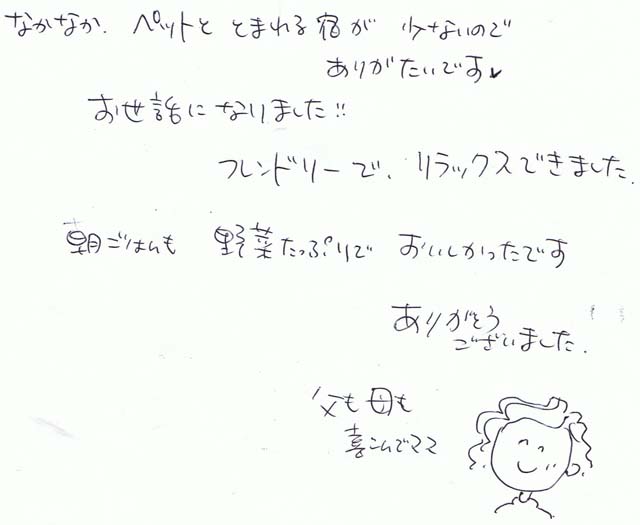 なかなか、ペットと とまれる宿が 少ないので
ありがたいです
お世話になりました!!
フレンドリーで、リラックスできました。
朝ごはんも 野菜たっぷりで おいしかったです
ありがとう
ございました。
父も母も
喜こんでママ